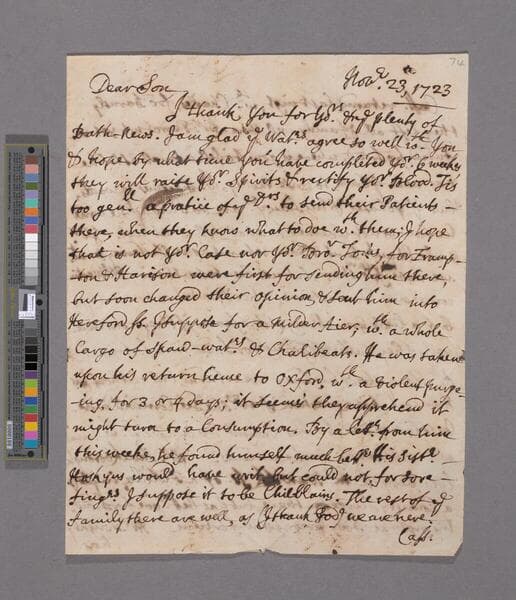 74
Nov.r 23.th 1723
Dear Son
I thank You for Yo.rs & ye plenty of
Bath-News. I am glad ye Wat.rs agree so well w.th You
& hope, by what time You have completed Yo.r 6 weeks
they will raise Yo.r Spirits & rectify Yo.r Blood. Tis
too gen.ll a pratice of ye D.rs to send their Patients
there, when they know not what to doe w.th them; I hope
that is not Yo.r Case nor Yo.r Bro.r for Framp-
ton & Harison were first for sending him there,
but soon changed their opinion, & sent him into
Hereford Sh. I suppose for a Milder Aier, w.th a whole
Cargo of Spaw-wat.rs & Chalibeats. He was taken
upon his return hence to Oxford, w.th a violent purge-
ing for 3 or 4 days; it seems they apprehend it
might turn to a Consumption. By a Let.r from him
this weeke, he found himself much bett.r His Sist.r
would have writ but could not for sore
fing.rs I suppose it to be Chilblains. The rest of ye
family there are well, as I thank God we are here.
Cass.